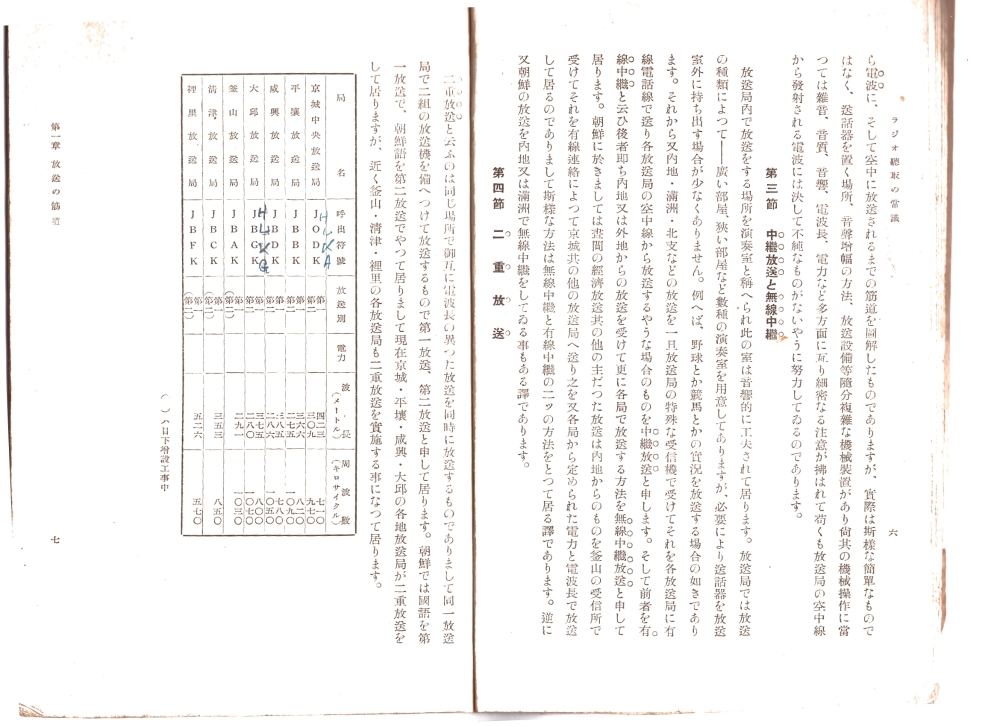 ラジオ聽取の常識
六
ら電波に、そして空中に放送されるまでの筋道を圖解したものでありますが、實際は斯樣な簡單なもので
はなく、送話器を置く場所、音聲增幅の方法、放送設備等隨分複雜な機械裝置があり尙其の機械操作に當
つては雜音、音質、音響、電波長、電力など多方面に亙り細密なる注意が拂はれて苟くも放送局の空中線
から發射される電波には決して不純なものがないやうに努力してゐるのであります。
第三節 中繼放送と無線中繼
放送局內で放送をする場所を演奏室と稱へられ此の室は音響的に工夫されて居ります。放送局では放送
の種類によつて――廣い部屋、狹い部屋など數種の演奏室を用意してありますが、必要により送話器を放送
室外に持ち出す場合が少なくありません。例へば、野球とか競馬とかの實況を放送する場合の如きであり
ます。それから又內地・滿洲・北支などの放送を一旦放送局の特殊な受信機で受けてそれを各放送局に有
線電話線で送り各放送局の空中線から放送するやうな場合のものを中繼放送と申します。そして前者を有
線中繼と云ひ後者卽ち內地又は外地からの放送を受けて更に各局で放送する方法を無線中繼放送と申して
居ります。朝鮮に於きましては晝間の經濟放送其の他の主だつた放送は內地からのものを釜山の受信所で
受けてそれを有線連絡によつて京城其の他の放送局へ送り之を又各局から定められた電力と電波長で放送
して居るのでありまして斯樣な方法は無線中繼と有線中繼の二ツの方法をとつて居る譯であります。逆に
又朝鮮の放送を內地又は滿洲で無線中繼をしてゐる事もある譯であります。
第四節 二重放送
二重放送と云ふのは同じ場所で御互に電波長の異つた放送を同時に放送するものでありまして同一放送
局で二組の放送機を備へつけて放送するもので第一放送、第二放送と申して居ります。朝鮮では國語を第
一放送で、朝鮮語を第二放送でやつて居りまして現在京城・平壤・咸興・大邱の各地放送局が二重放送を
して居りますが、近く釜山・淸津・裡里の各放送局も二重放送を實施する事になつて居ります。
局名 呼出符號 放送別 電力 波長(メートル) 周波數(キロサイクル)
京城中央放送局 JODK 第一 四二三 七一〇
第二 三〇九 九七〇
HLKA
平壤放送局 JBBK 第一 三六六 八二〇
第二 二七五 一〇九〇
咸興放送局 JBDK 第一 三八五 七八〇
第二 二八六 一〇五〇
大邱放送局 JBGK 第一 三七五 八〇〇
第二 二八〇 一〇七〇
HLKG
釜山放送局 JBAK 第一 二九一 一〇三〇
(第二)
淸津放送局 JBCK 第一 三五三 八五〇
(第二)
裡里放送局 JBFK 第一 五二六 五七〇
(第二)
( )ハ目下增設工事中
第一章 放送の筋道
七